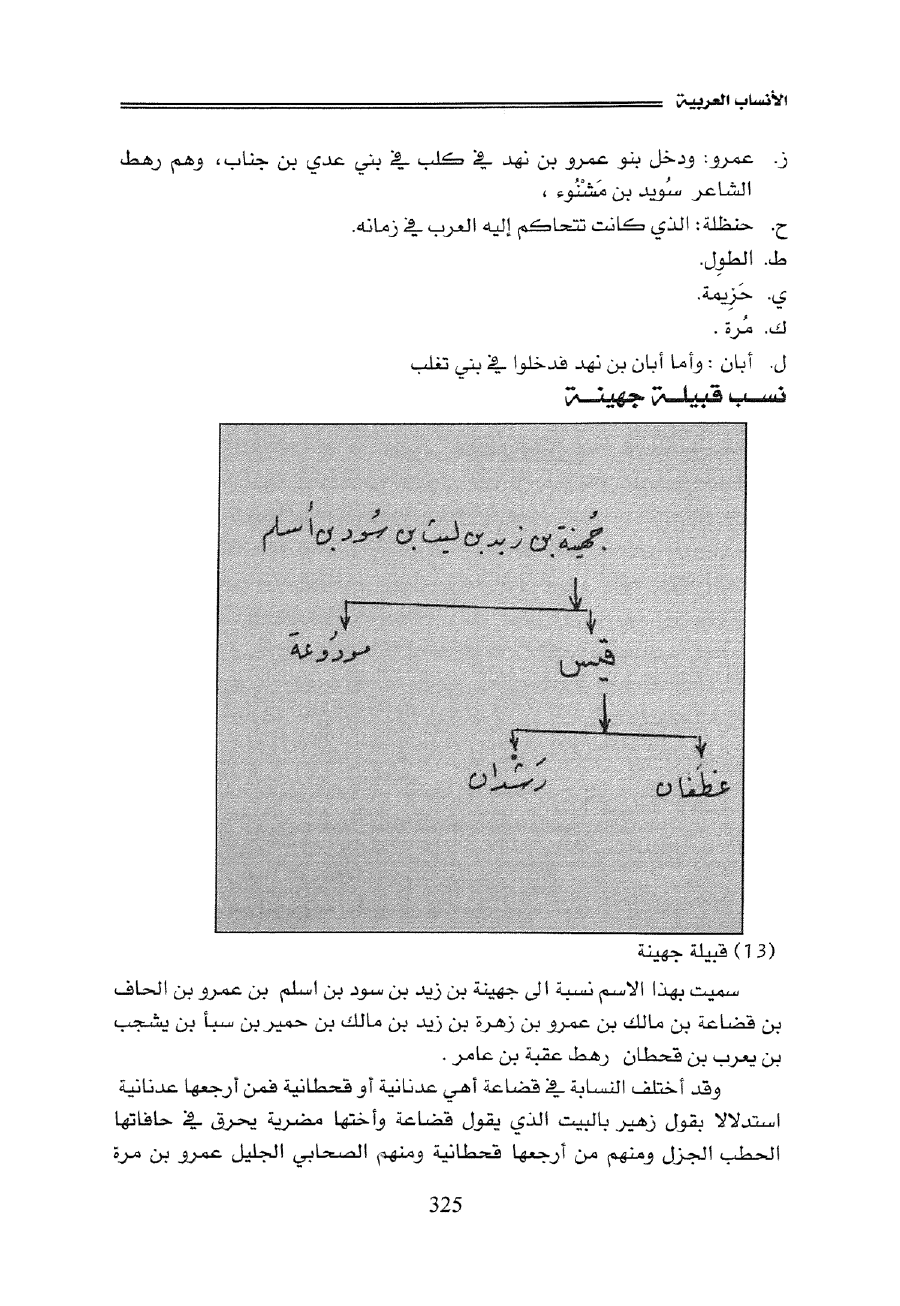 الأنساب العربية
ز. عمرو: ودخل بنو عمرو بن نهد في كلب في بني عدي بن جناب، وهم رهط
الشاعر سُويد بن مَشْنُوء ،
ح. حنظلة: الذي كانت تتحاكم إليه العرب في زمانه.
ط. الطوِل.
ي. حَزِيمة.
ك. مُرة .
ل. أبان : وأما أبان بن نهد فدخلوا في بني تغلب
نسب قبيلة جهينة
جُهينة بن زيد بن ليث بن سُود بن أسلُم
قيس مودُوعة
غطَفان رَشْدان
(13) قبيلة جهينة
سميت بهذا الاسم نسبة الى جهينة بن زيد بن سود بن اسلم بن عمرو بن الحاف
بن قضاعة بن مالك بن عمرو بن زهرة بن زيد بن مالك بن حمير بن سبأ بن يشجب
بن يعرب بن قحطان رهط عقبة بن عامر .
وقد أختلف النسابة في قضاعة أهي عدنانية أو قحطانية فمن أرجعها عدنانية
استدلالا بقول زهير بالبيت الذي يقول قضاعة وأختها مضرية يحرق في حافاتها
الحطب الجزل ومنهم من أرجعها قحطانية ومنهم الصحابي الجليل عمرو بن مرة
325